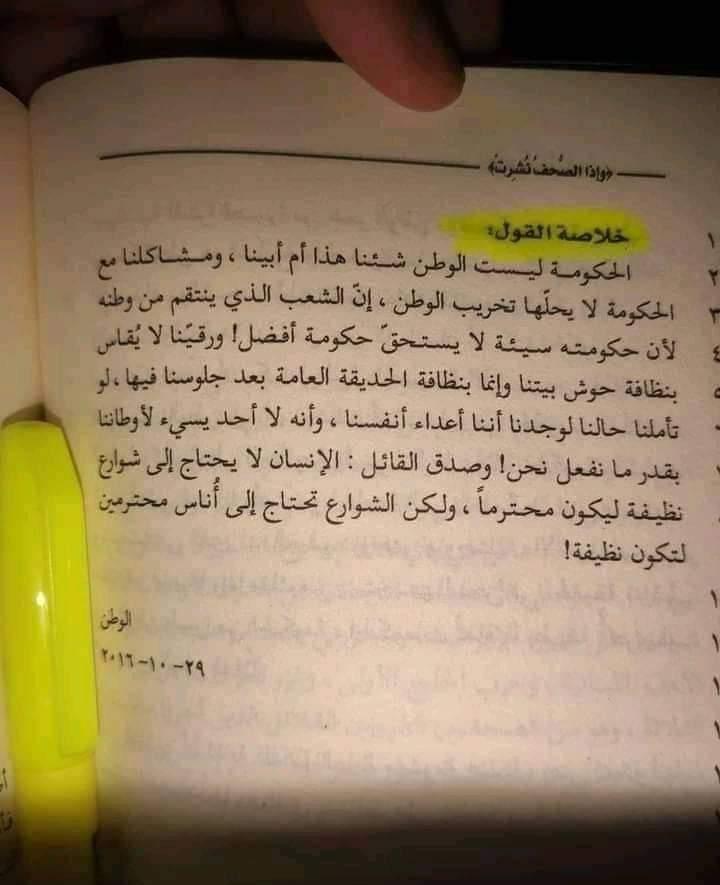 ﴿وإذا الصُّحفُ نُشِرت﴾
خلاصة القول:
الحكومة ليست الوطن شئنا هذا أم أبينا ، ومشاكلنا مع
الحكومة لا يحلّها تخريب الوطن ، إنّ الشعب الذي ينتقم من وطنه
لأن حكومته سيئة لا يستحقّ حكومة أفضل! ورقيّنا لا يُقاس
بنظافة حوش بيتنا وإنما بنظافة الحديقة العامة بعد جلوسنا فيها ، لو
تأملنا حالنا لوجدنا أننا أعداء أنفسنا ، وأنه لا أحد يسيء لأوطاننا
بقدر ما نفعل نحن! وصدق القائل : الإنسان لا يحتاج إلى شوارع
نظيفة ليكون محترماً ، ولكن الشوارع تحتاج إلى أُناس محترمين
لتكون نظيفة!
الوطن
٢٩-١٠-٢٠١٦